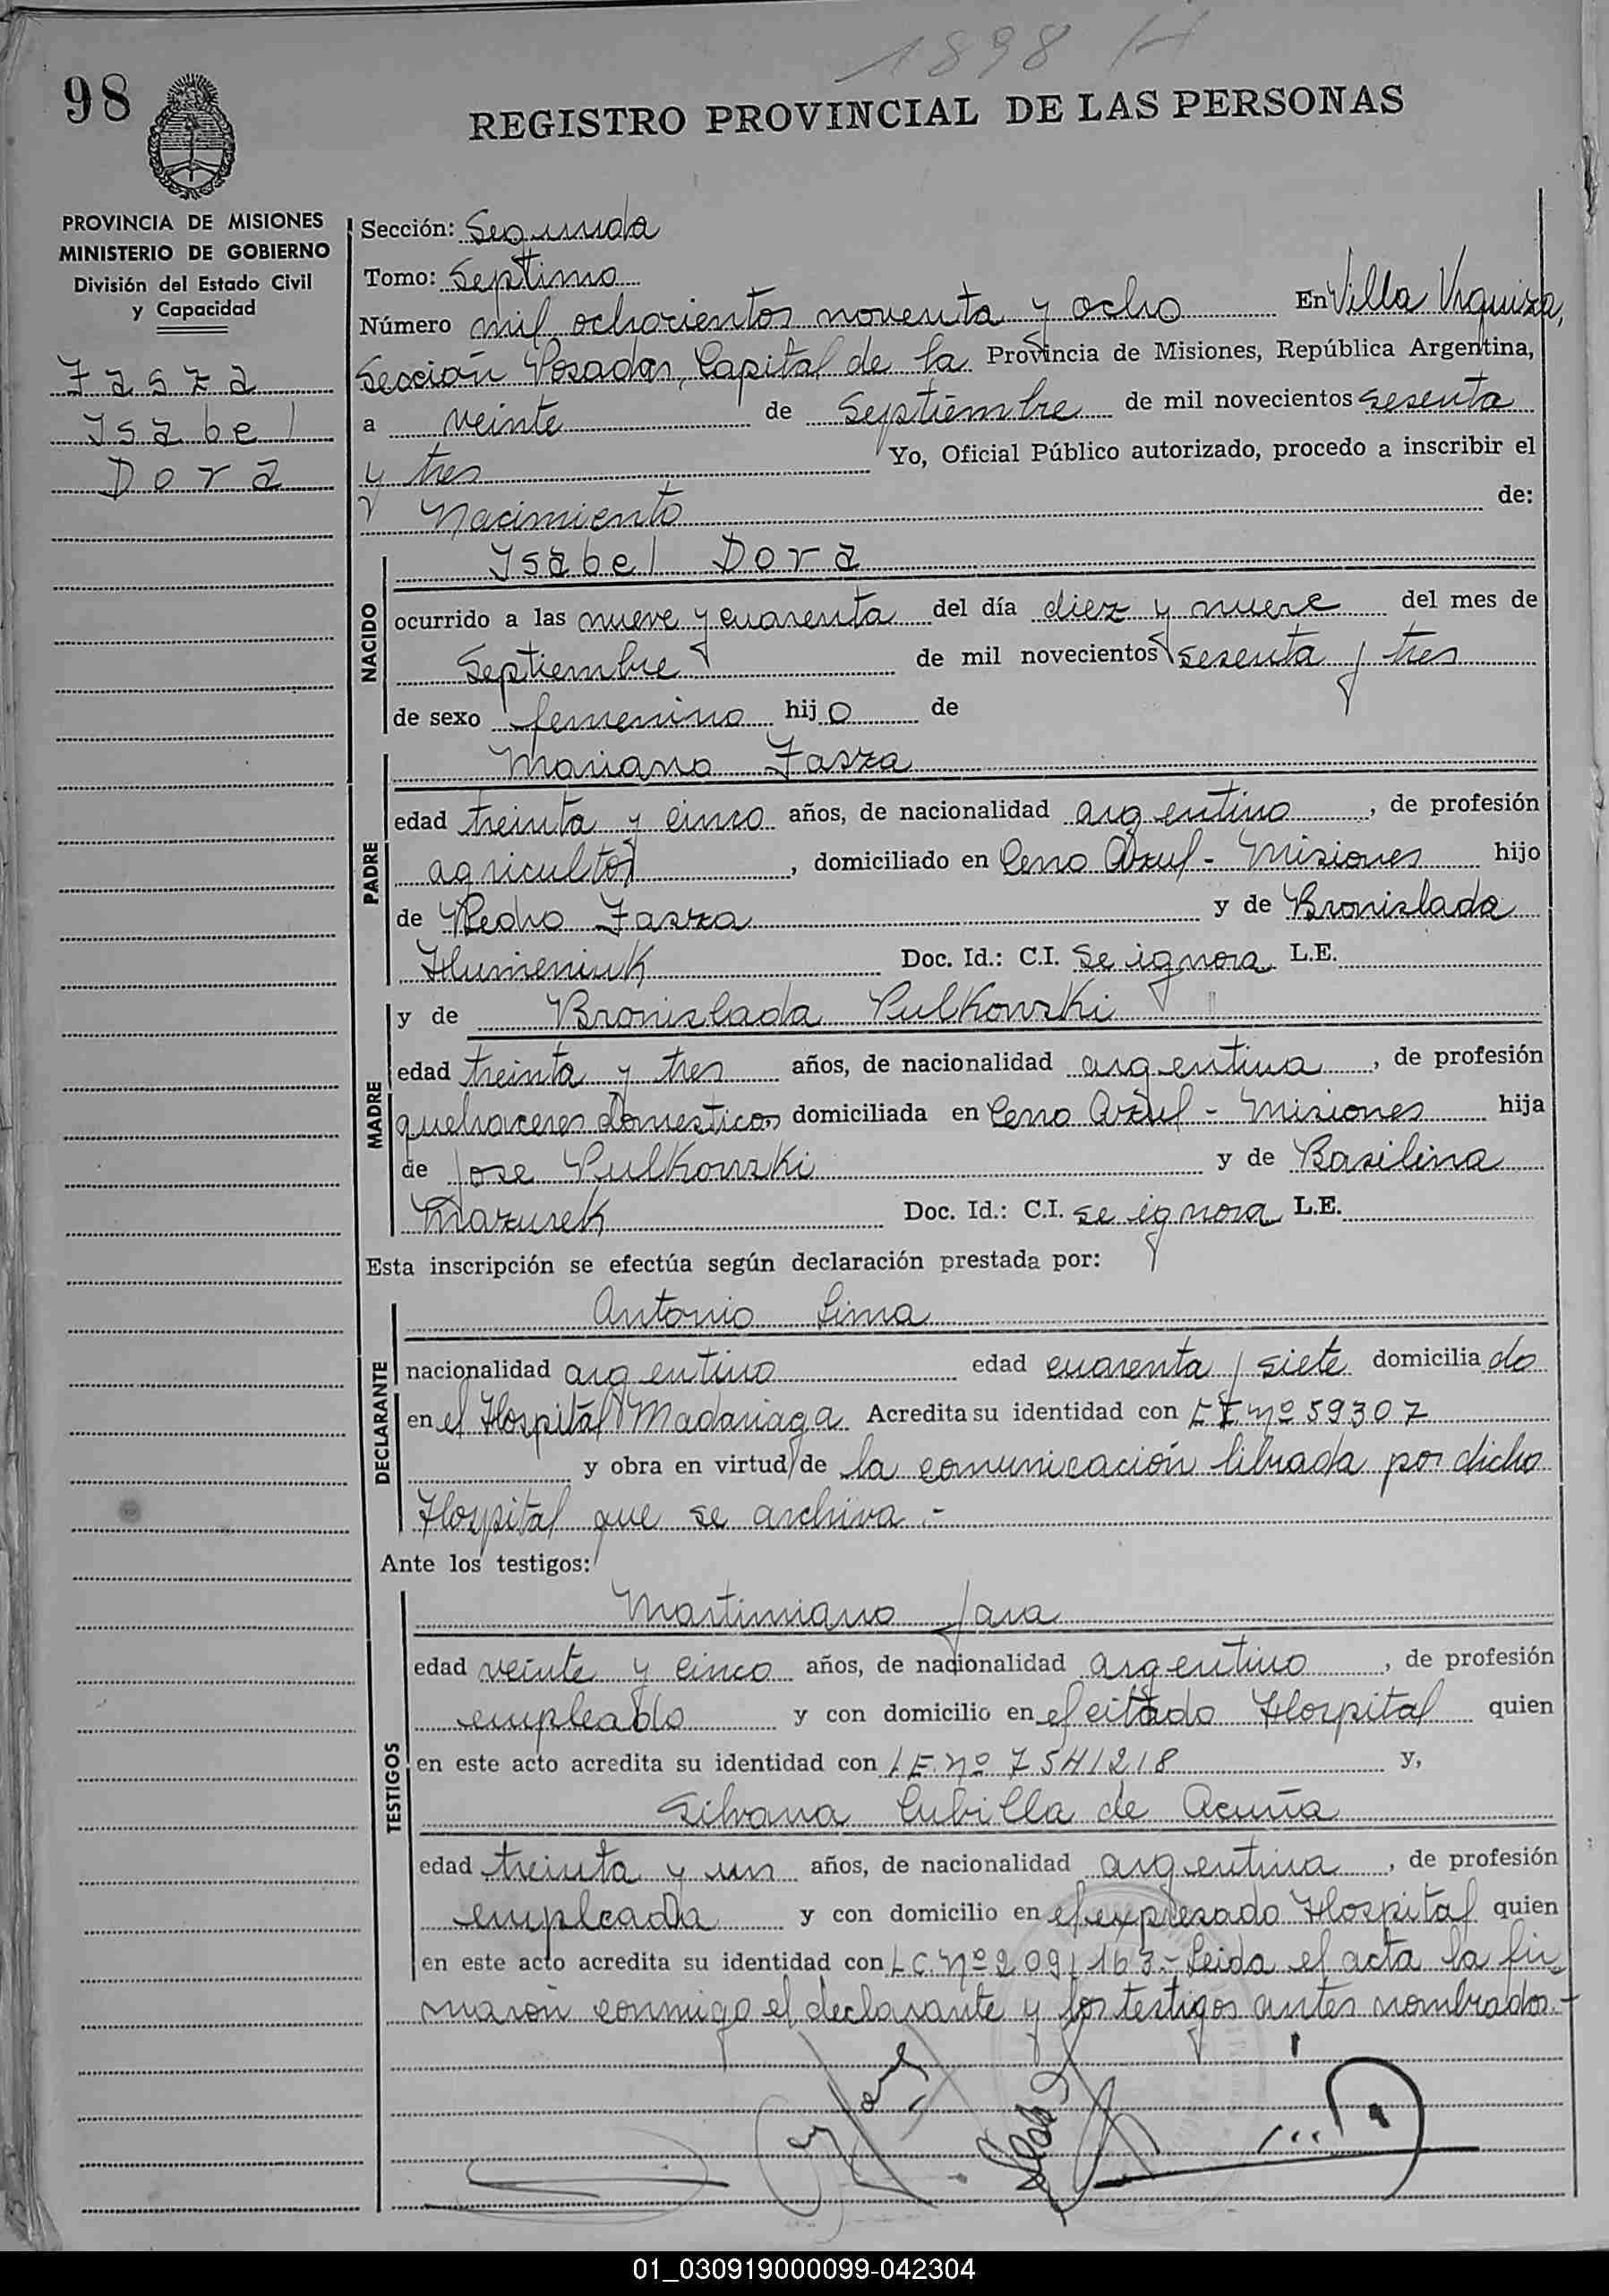 1898 H
98
REGISTRO PROVINCIAL DE LAS PERSONAS
PROVINCIA DE MISIONES
MINISTERIO DE GOBIERNO
División del Estado Civil
y Capacidad
Jasza
Isabel
Dora
Sección: Segunda
Tomo: Septimo
Número mil ochocientos noventa y ocho En Villa Urquiza,
Sección Posadas, Capital de la Provincia de Misiones, República Argentina,
a veinte de Septiembre de mil novecientos sesenta
y tres Yo, Oficial Público autorizado, procedo a inscribir el
Nacimiento de:
NACIDO
Isabel Dora
ocurrido a las nueve y cuarenta del día diez y nueve del mes de
Septiembre de mil novecientos sesenta y tres
de sexo femenino hijo de
PADRE
Mariano Jasza
edad treinta y cinco años, de nacionalidad argentino, de profesión
agricultor, domiciliado en Cerro Azul - Misiones hijo
de Pedro Jasza y de Bronislada
Humeniuk Doc. Id.: C.I. se ignora L.E.
MADRE
y de Bronislada Pulkowski
edad treinta y tres años, de nacionalidad argentina, de profesión
quehaceres domesticos domiciliada en Cerro Azul - Misiones hija
de Jose Pulkowski y de Basilina
Mazurek Doc. Id.: C.I. se ignora L.E.
Esta inscripción se efectúa según declaración prestada por:
DECLARANTE
Antonio Lima
nacionalidad argentino edad cuarenta y siete domiciliado
en el Hospital Madariaga Acredita su identidad con C.I. nº 59307
y obra en virtud de la comunicación librada por dicho
Hospital que se archiva.-
Ante los testigos:
TESTIGOS
Martimiano Jara
edad veinte y cinco años, de nacionalidad argentino, de profesión
empleado y con domicilio en el citado Hospital quien
en este acto acredita su identidad con L.E. nº 7541218 y,
Silvana Cubilla de Acuña
edad treinta y un años, de nacionalidad argentina, de profesión
empleada y con domicilio en el expresado Hospital quien
en este acto acredita su identidad con L.C. nº 2091163.- Leida el acta la fir-
maron conmigo el declarante y los testigos antes nombrados.-
01_030919000099-042304